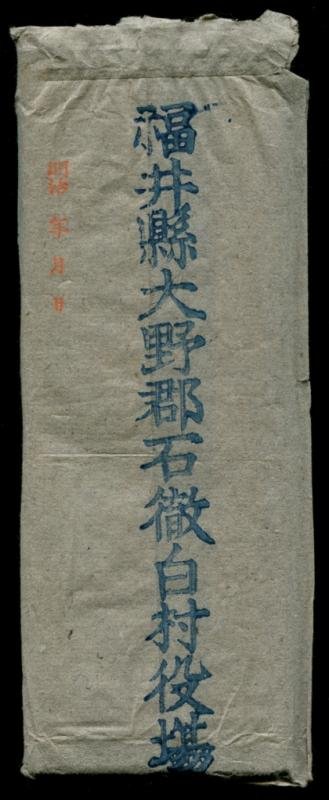 福井縣大野郡石徹白村役場
明治 年 月 日